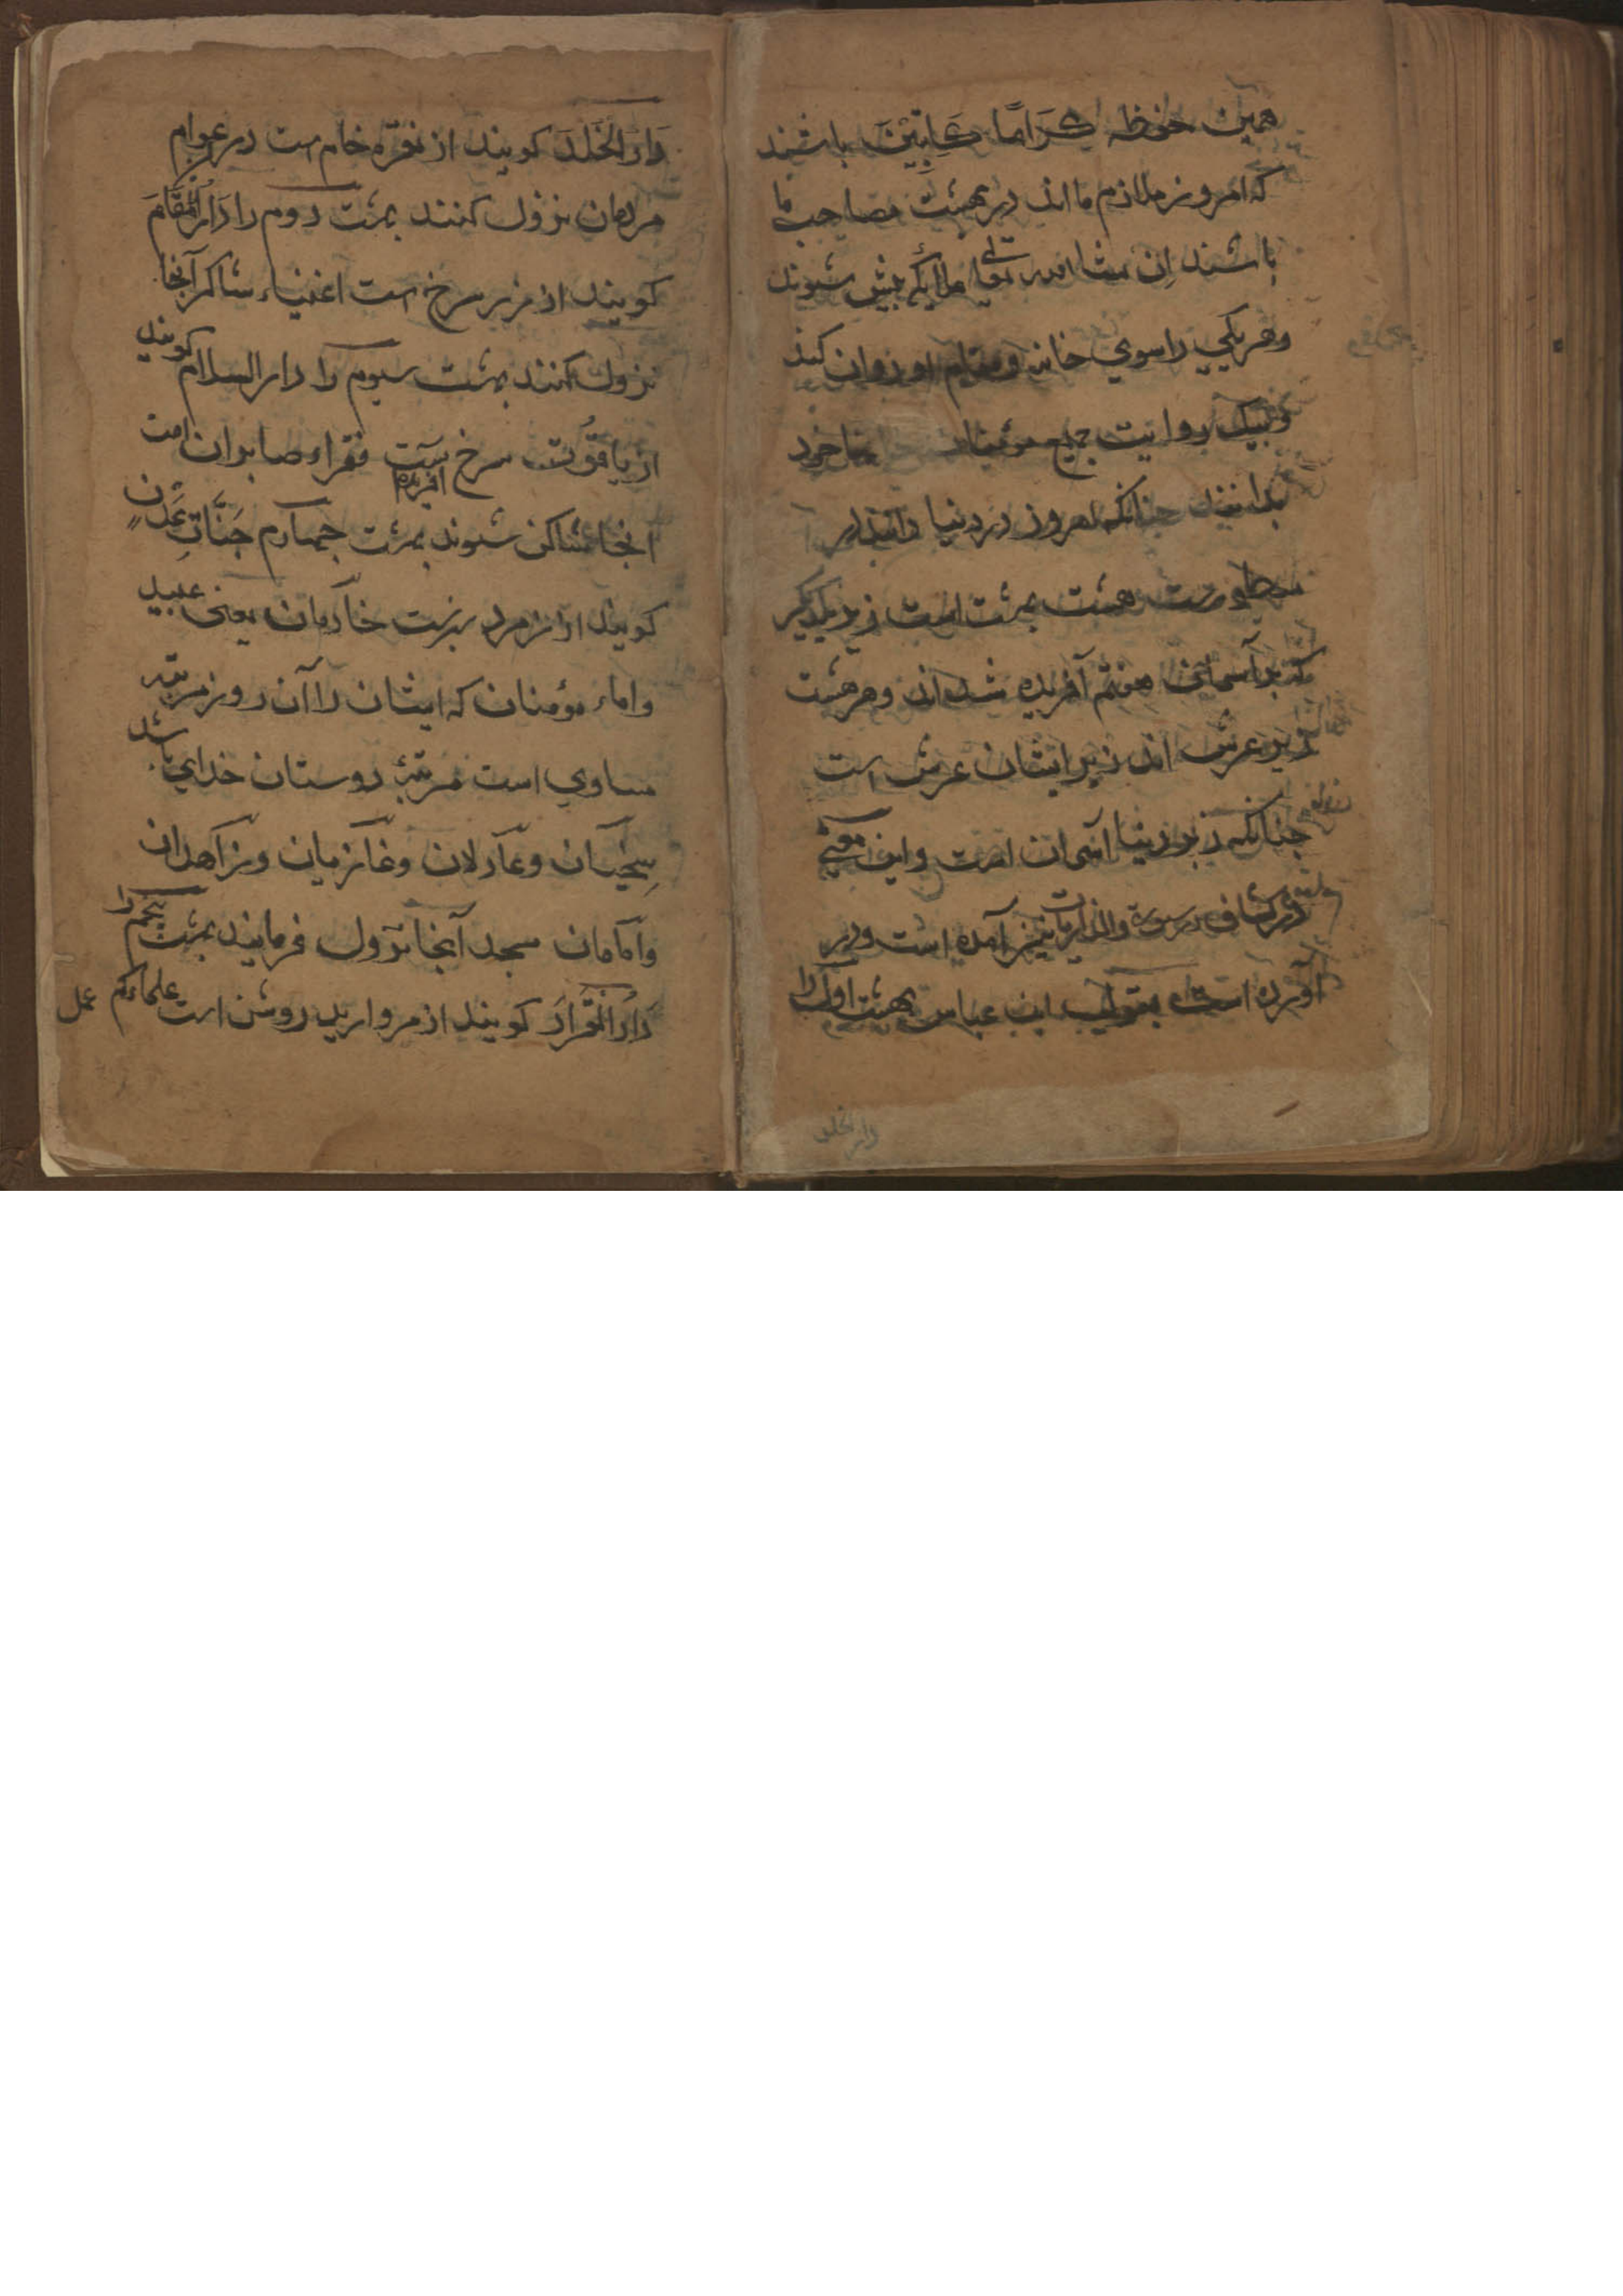 همین حفظه کِرَامًا کَاتِبِیْنَ باشند
که امروز ملازم ما اند در بهشت مصاحب ما
باشند اِن شا الله تعالی ملایکه پیش شوند
وهر یکی را سوی خانه ومقام او روان کنند
وبیک روایت جمیع مؤمنان خود
بدانند چنانکه امروز در دنیا دانند
هشت بهشت است زبر یکدیگر
که بر آسمان هفتم آفریده شده اند وهر هشت
زیر عرش اند زبر ایشان عرش است
چنانکه زبر دنیا آسمان است واین معنی
در کشاف در سورة والذاریات نیز آمده است ودر
آورده است بقول ابن عباس بهشت اول را
دار الخلد
دَارُ الْخُلْدَ کویند از نقره خام است در عوام
مردمان نزول کنند بهشت دوم را دَارُ الْمُقَامَ
کویند از زر سرخ است اغنیاء شاکر آنجا
نزول کنند بهشت سیوم را دار السلام کویند
از یاقوت سرخ است افریده فقراء صابران امت
انجا ساکن شوند بهشت چهارم جَنَّاتِ عَدْنٍ
کویند از زمرد سبزست خادمان یعنی عبید
واماء مؤمنان که ایشان را آن روز مرتبه
مساوی است مرتبۀ دوستان خدای باشد
سخیان وعادلان وغازیان وزاهدان
وامامان مسجد آنجا نزول فرمایند بهشت پنجم را
دَارُ الْقَرَارَ کویند از مروارید روشن است علماء کم عمل